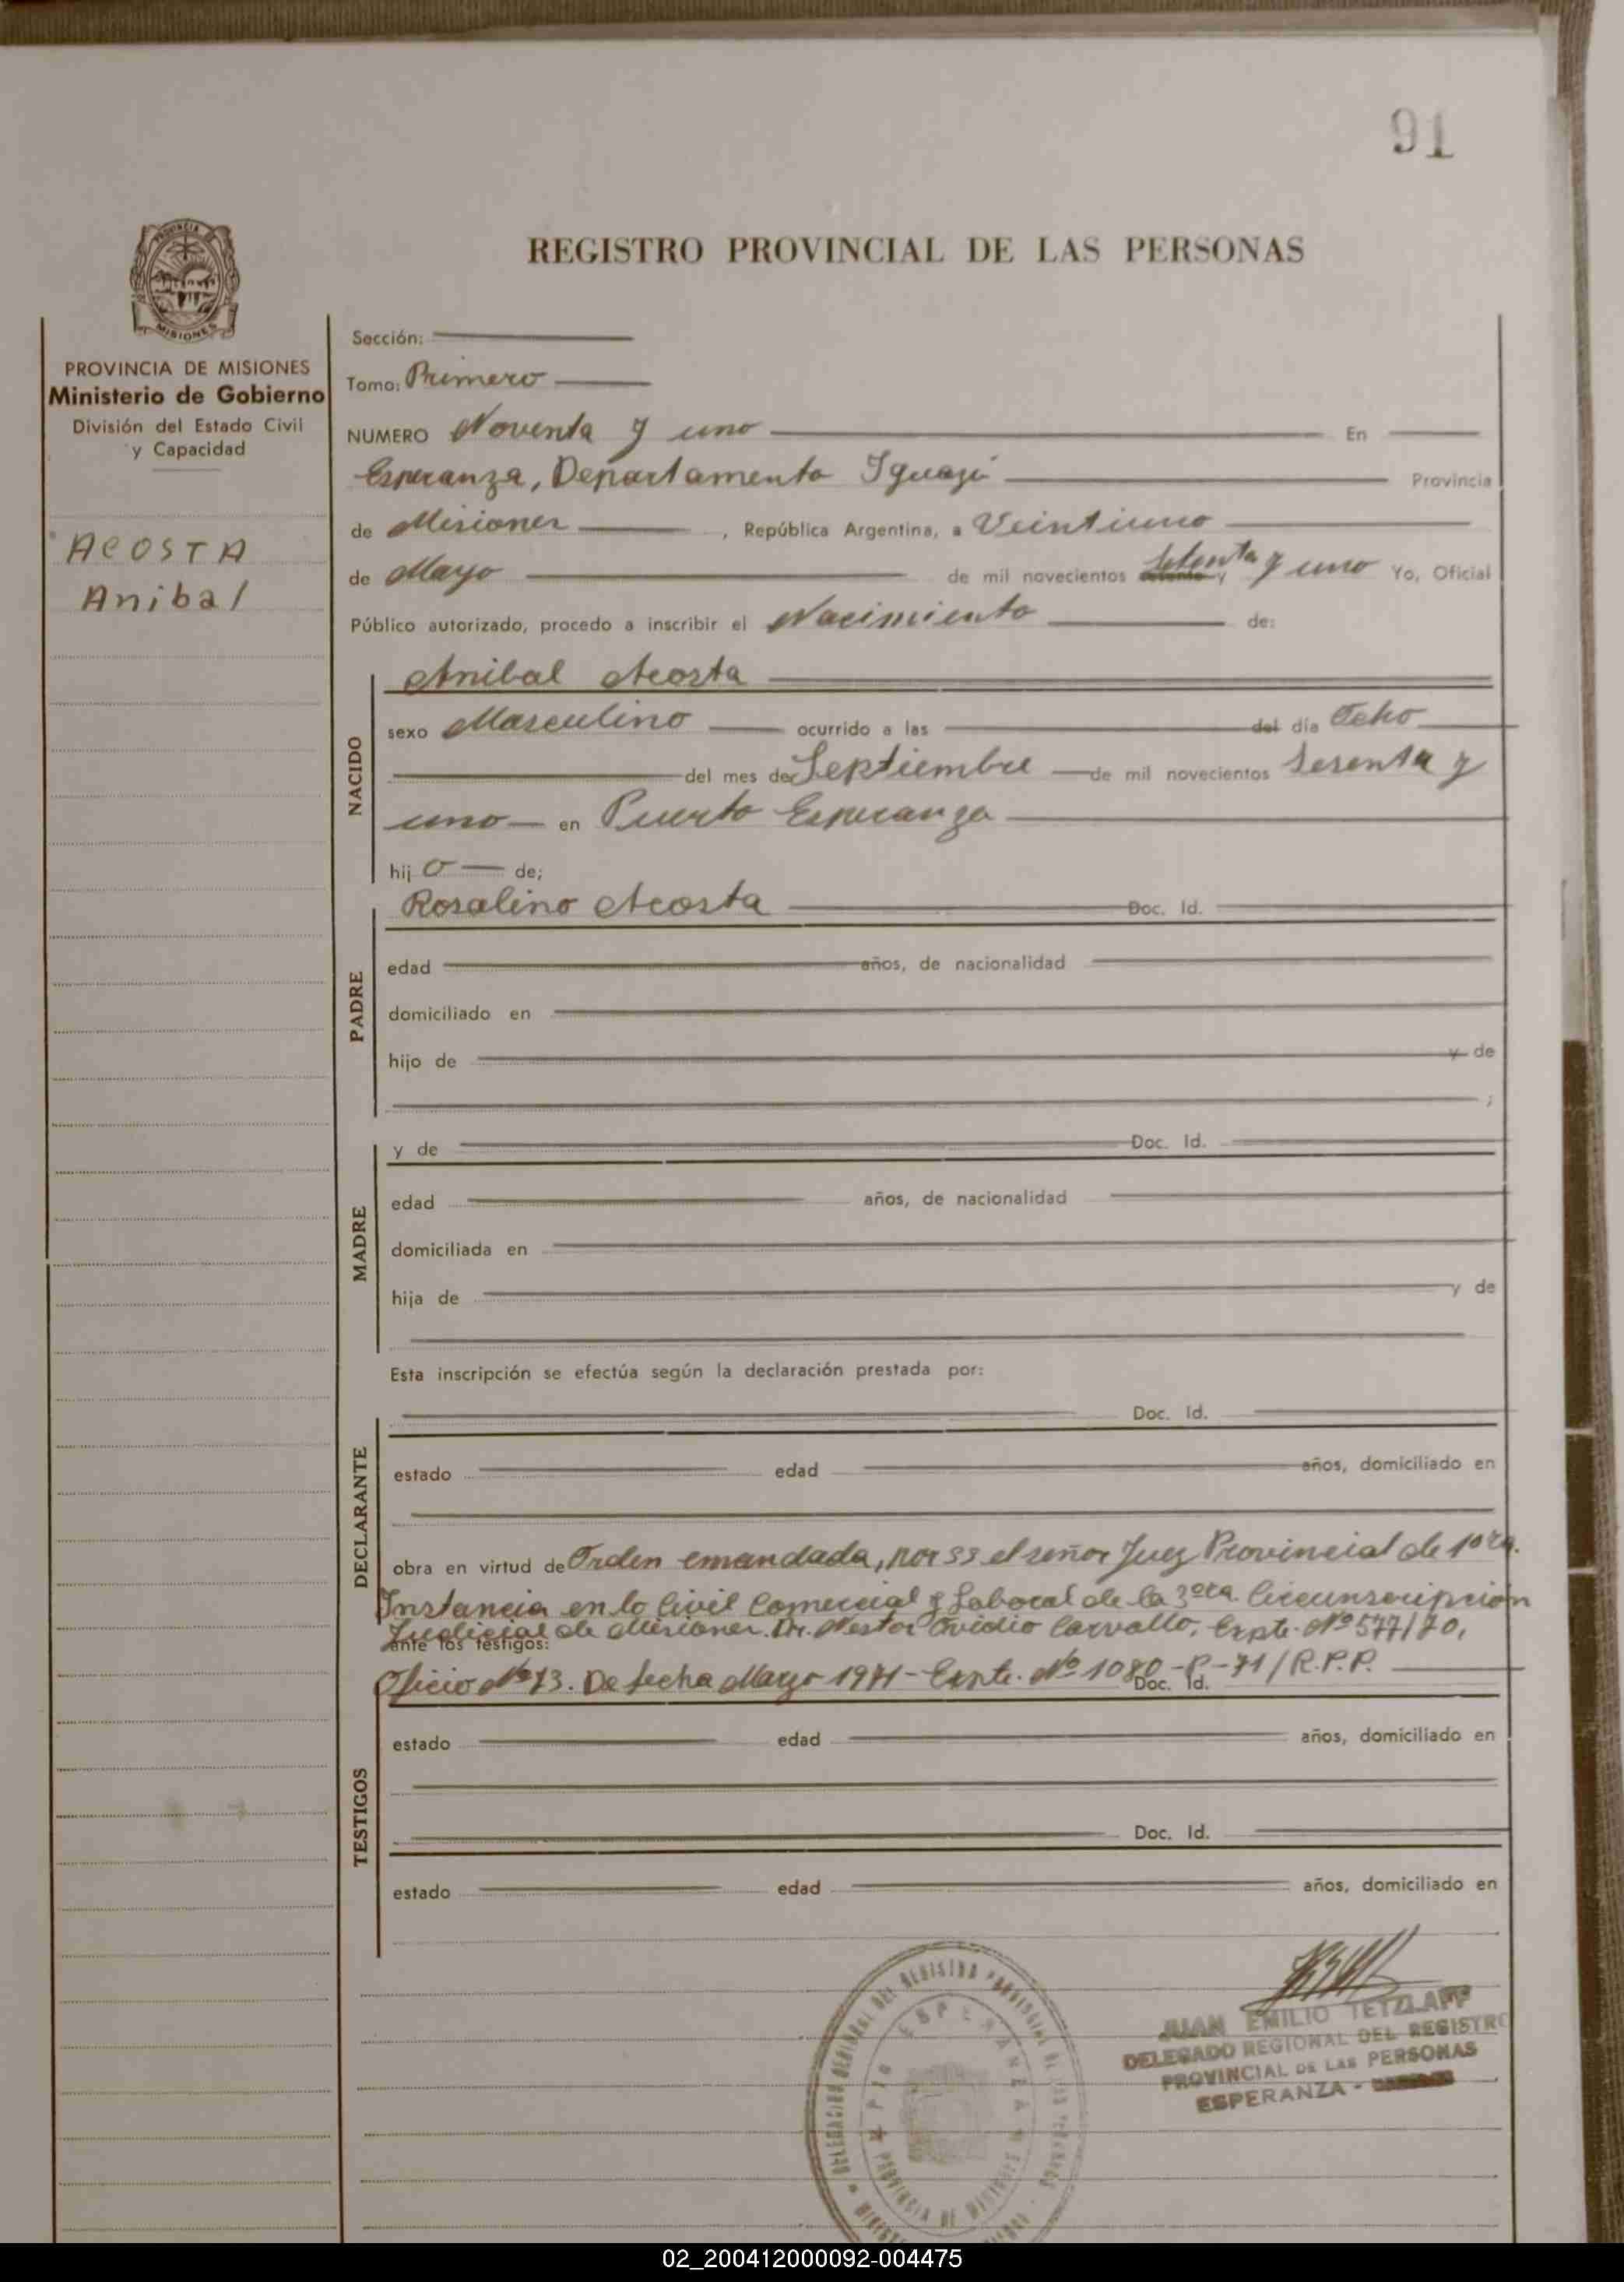 91
PROVINCIA DE
MISIONES
REGISTRO PROVINCIAL DE LAS PERSONAS
PROVINCIA DE MISIONES
Ministerio de Gobierno
División del Estado Civil
y Capacidad
ACOSTA
Anibal
Sección:
Tomo: Primero
NUMERO Noventa y uno En
Esperanza, Departamento Iguazú Provincia
de Misiones , República Argentina, a Veintiuno
de Mayo de mil novecientos setenta y uno Yo, Oficial
Público autorizado, procedo a inscribir el Nacimiento de:
NACIDO
Anibal Acosta
sexo Masculino ocurrido a las del día Ocho
del mes de Septiembre de mil novecientos Sesenta y
uno en Puerto Esperanza
hijo de;
PADRE
Rosalino Acosta Doc. Id.
edad años, de nacionalidad
domiciliado en
hijo de y de
;
MADRE
y de Doc. Id.
edad años, de nacionalidad
domiciliada en
hija de y de
Esta inscripción se efectúa según la declaración prestada por:
DECLARANTE
Doc. Id.
estado edad años, domiciliado en
obra en virtud de Orden emandada, por ss el señor Juez Provincial de 1º ra.
Instancia en lo Civil Comercial y Laboral de la 3º ra. Circunscripción
Judicial de Misiones. Dr. Nestor Ovidio Carvallo, Expte. Nº 577/70,
ante los testigos:
Oficio Nº 13. De fecha Marzo 1971 - Expte. Nº 1080-P-71/R.P.P.
Doc. Id.
TESTIGOS
estado edad años, domiciliado en
Doc. Id.
estado edad años, domiciliado en
DELEGACION REGIONAL DEL REGISTRO PROVINCIAL DE LAS PERSONAS
ESPERANZA
PROVINCIA DE MISIONES
JUAN EMILIO TETZLAFF
DELEGADO REGIONAL DEL REGISTRO
PROVINCIAL DE LAS PERSONAS
ESPERANZA -
02_200412000092-004475